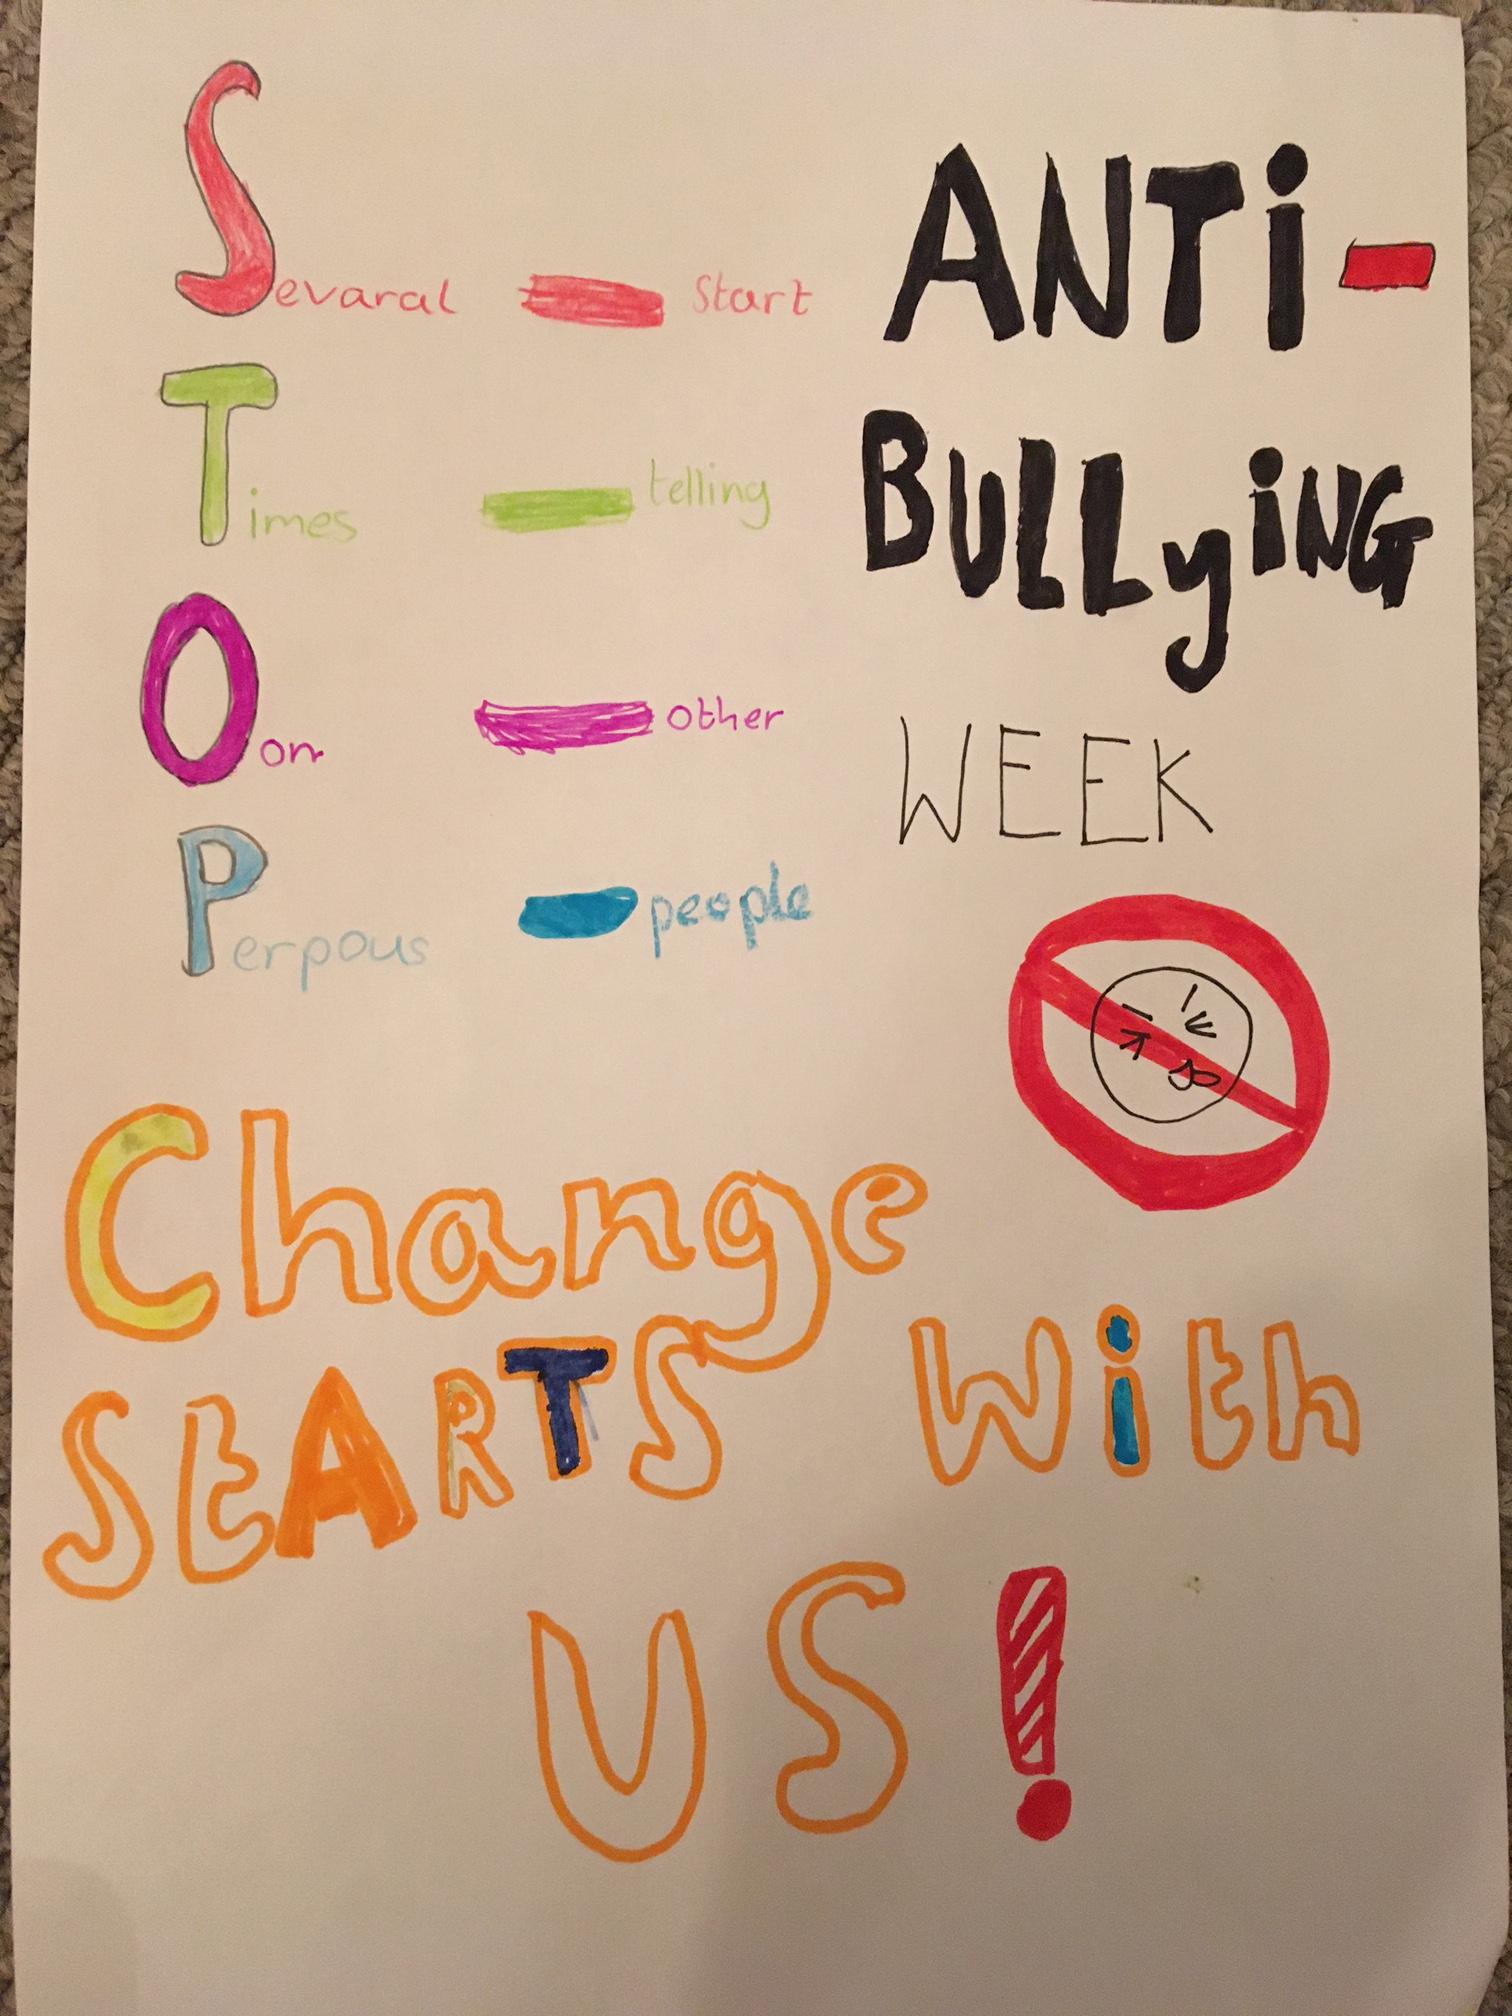 Sevaral - Start
Times - telling
Oon - other
Perpous - people
ANTi-
BULLyiNG
WEEK
Change
StARTS With
US!